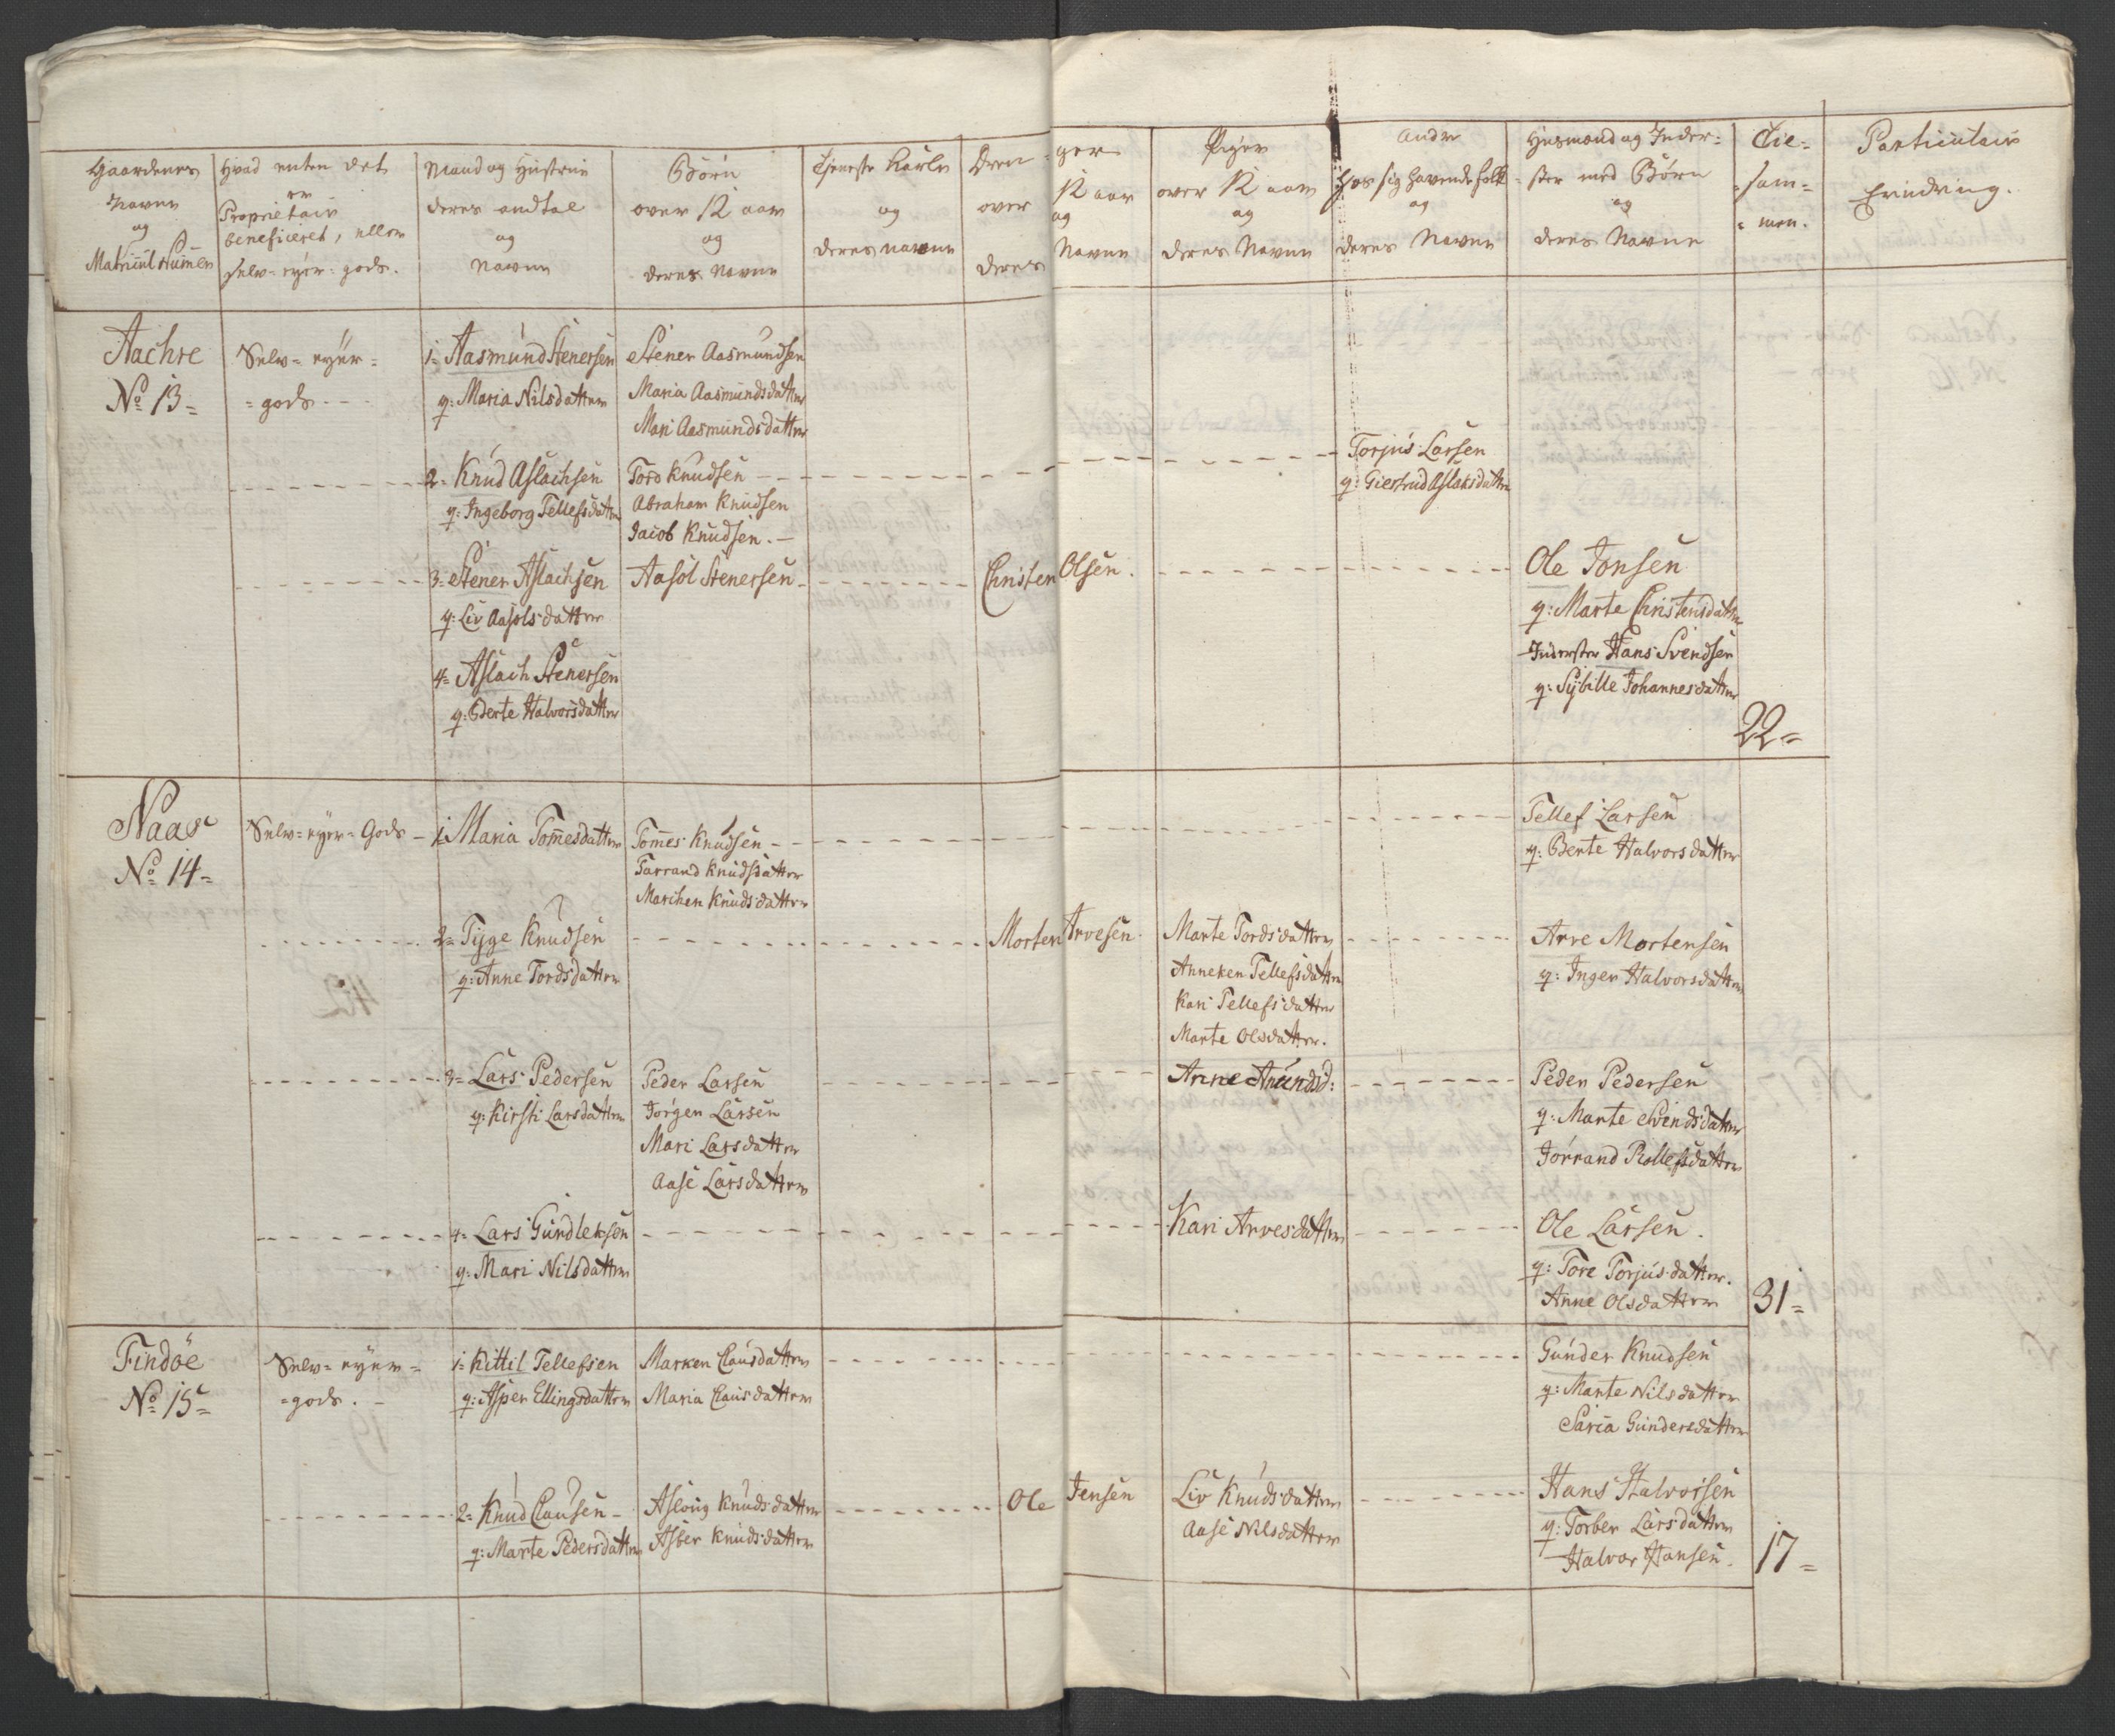 Gaardenes
Navne
og
Matricul Numer
Hvad enten det
er
Proprietair
beneficeret, eller
Selv-eyer-gods.
Mand og Hustrue
deres andtal
og
Navne
Børn
over 12 aar
og
deres Navne
Tjeneste Karle
og
deres Navne
Dren-
over
deres
ger
12 aar
og
Navne
Piger
over 12 aar
og
deres Navne
Andre
hos sig havende folk
og
deres Navne
Husmænd og Inder-
ster med Børn
og
deres Navne
Tie-
sam-
men.
Particulair
Erindring.
Aachre
No 13=
Selv-eyer-
=gods
1= Aasmund Stenersen
q: Maria Nilsdatter
Stener Aasmundsen
Maria Aasmundsdatter
Mari Aasmundsdatter
2= Knud Aslachsen
q: Ingeborg Tellefsdatter
Tord Knudsen
Abraham Knudsen
Jacob Knudsen.
Torjus Larsen
q: Giertrud Aslaksdatter
3= Stener Aslachsen
q: Liv Aasolsdatter
Aasol Stenersen
Christen Olsen.
Ole Jonsen
q: Marte Christensdatter
Inderster Hans Svendsen
q: Sybille Johannesdatter
4= Aslach Stenersen
q: Berte Halvorsdatter
22=
Naas
No 14=
Selv-eyer-Gods
1= Maria Tomesdatter
Tomes Knudsen
Tarrand Knudsdatter
Marichen Knudsdatter
Tellef Larsen
q: Berte Halvorsdatter
2= Tyge Knudsen
q: Anne Tordsdatter
Morten Arvesen.
Marte Tordsdatter
Anneken Tellefsdatter
Kari Tellefsdatter
Marte Olsdatter.
Arve Mortensen
q: Inger Halvorsdatter
3= Lars Pedersen
q: Kirsti Larsdatter
Peder Larsen
Jørgen Larsen
Mari Larsdatter
Aase Larsdatter
Anne Anundsd:
Peder Pedersen
q: Marte Svendsdatter
Jørrand Rollefsdatter
4= Lars Gundleksen
q: Mari Nilsdatter
Kari Arvesdatter
Ole Larsen.
q: Tore Torjusdatter.
Anne Olsdatter
31=
Findöe
No 15=
Selv-eyer=
=gods.
1= Kittil Tellefsen
q: Asper Ellingsdatter
Marken Clausdatter
Maria Clausdatter
Gunder Knudsen
q: Marte Nilsdatter
Saria Gundersdatter
2= Knud Clausen
q: Marte Pedersdatter
Asloug Knudsdatter
Asber Knudsdatter
Ole Jensen
Liv Knudsdatter
Aase Nilsdatter
Hans Halvorsen
q: Torber Larsdatter
Halvor Hansen.
17=